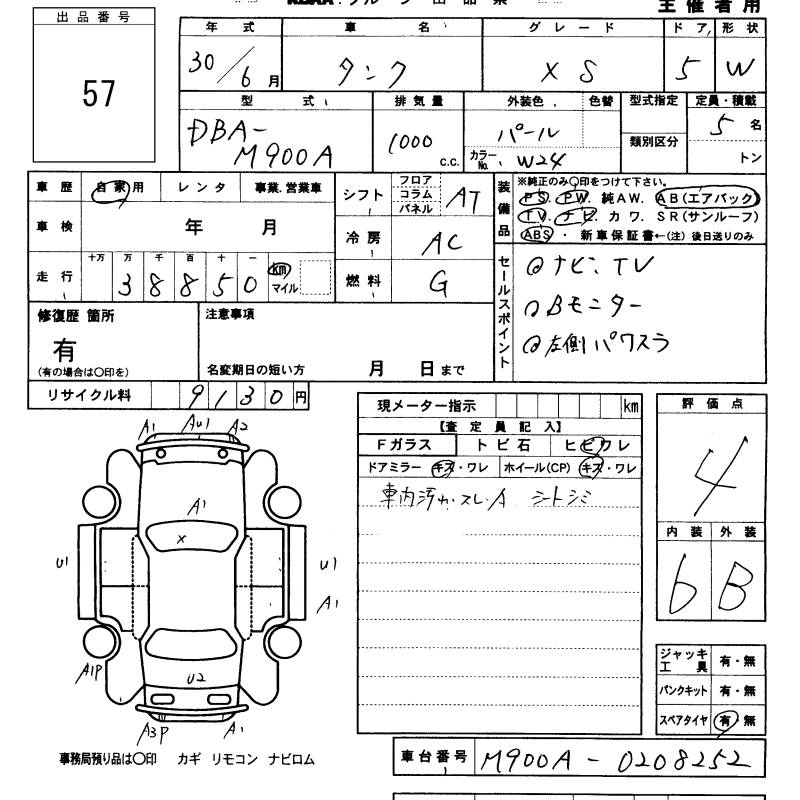 主催者用
出品番号
57
年式 車名 グレード ドア 形状
30/6月 タンク XS 5 W
型式 排気量 外装色 色替 型式指定 定員・積載
DBA-M900A 1000 c.c. パール 類別区分 5名
カラーNo. W24 トン
車歴 自家用 レンタ 事業.営業車
車検 年 月
走行 十万 万 千 百 十 一
38850 km マイル
シフト フロア コラム パネル AT
冷房 AC
燃料 G
装備品
※純正のみ〇印をつけて下さい。
PS. PW. 純AW. AB(エアバック)
TV. ナビ. カワ. SR(サンルーフ)
ABS・ 新車保証書←(注) 後日送りのみ
セールスポイント
◎ナビ、TV
◎Bモニター
◎左側パワスラ
修復歴 箇所
有
(有の場合は〇印を)
注意事項
名変期日の短い方 月 日まで
リサイクル料 9130円
現メーター指示 km
【査定員記入】
Fガラス トビ石 ヒビワレ
ドアミラー キズ・ワレ ホイール(CP) キズ・ワレ
車内汚れ・スレ・A シートシミ
評価点
4
内装 外装
6 B
ジャッキ工具 有・無
パンクキット 有・無
スペアタイヤ 有・無
A1 AU1 A2
A1
X
U1 U1
A1
A1P
U2
A3P A1
事務局預り品は〇印 カギ リモコン ナビロム
車台番号 M900A-0208252